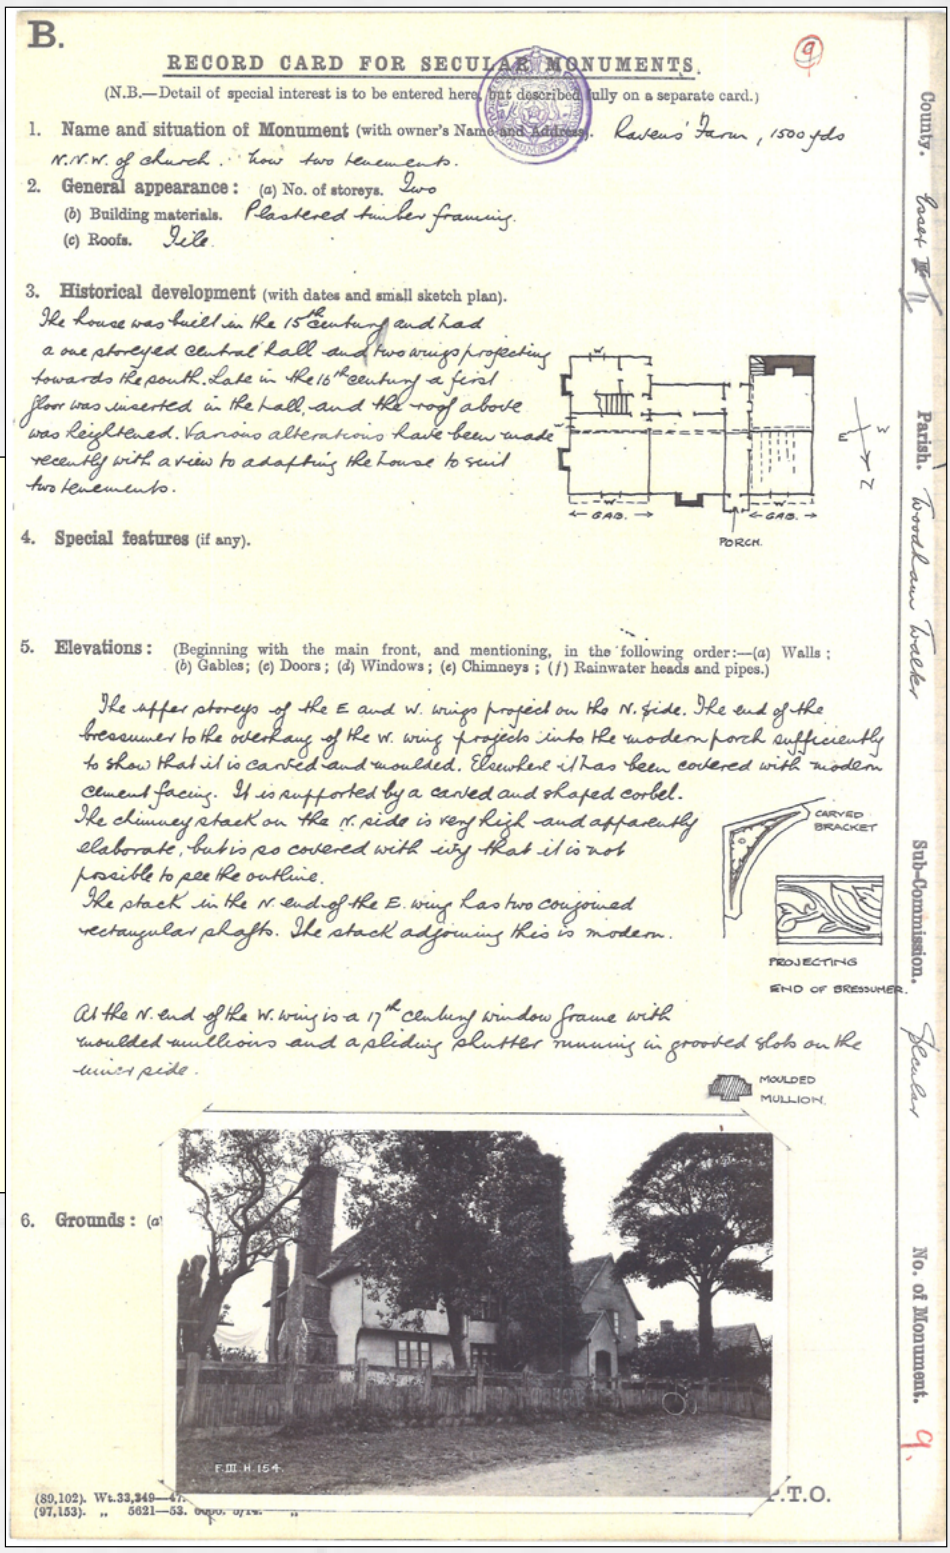 B.
9
RECORD CARD FOR SECULAR MONUMENTS.
(N.B.—Detail of special interest is to be entered here, but described fully on a separate card.)
1. Name and situation of Monument (with owner's Name and Address). Ravens' Farm, 1500 yds
N.N.W. of church. Now two tenements.
2. General appearance: (a) No. of storeys. Two
(b) Building materials. Plastered timber framing.
(c) Roofs. Tile.
3. Historical development (with dates and small sketch plan).
The house was built in the 15th century and had
a one storeyed central hall and two wings projecting
towards the south. Late in the 16th century a first
floor was inserted in the hall, and the roof above
was heightened. Various alterations have been made
recently with a view to adapting the house to suit
two tenements.
W
W
GAB.
GAB.
PORCH.
E W
N
4. Special features (if any).
5. Elevations: (Beginning with the main front, and mentioning, in the following order:—(a) Walls;
(b) Gables; (c) Doors; (d) Windows; (e) Chimneys; (f) Rainwater heads and pipes.)
The upper storeys of the E and W. wings project on the N. side. The end of the
bressumer to the overhang of the W. wing projects into the modern porch sufficiently
to show that it is carved and moulded. Elsewhere it has been covered with modern
cement facing. It is supported by a carved and shaped corbel.
The chimney stack on the N. side is very high and apparently
elaborate, but is so covered with ivy that it is not
possible to see the outline.
The stack in the N. end of the E. wing has two conjoined
rectangular shafts. The stack adjoining this is modern.
CARVED
BRACKET
PROJECTING
END OF BRESSUMER.
At the N. end of the W. wing is a 17th century window frame with
moulded mullions and a sliding shutter running in grooved slots on the
inner side.
MOULDED
MULLION.
6. Grounds: (a)
F.III H 154.
(89,102). Wt.33,349—47.
(97,153). „ 5621—53. 6000. 3/14. „
P.T.O.
County. Essex
Parish. Woodham Walter
Sub-Commission. Secular
No. of Monument. 9.